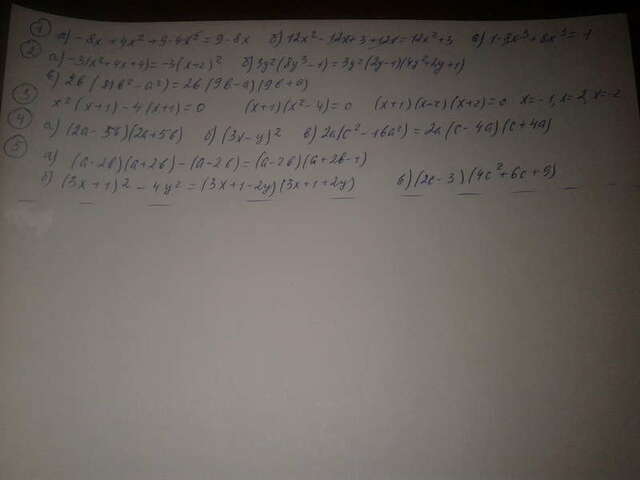 1 а) -8x+4x²+9-4x²=9-8x б) 12x²-12x+3+12x=12x²+3 в) 1-8x³+8x³=1
2 а) -3(x²+4x+4)=-3(x+2)² б) 3y²(8y³-1)=3y²(2y-1)(4y²+2y+1)
в) 2b(81b²-a²)=2b(9b-a)(9b+a)
3 x²(x+1)-4(x+1)=0 (x+1)(x²-4)=0 (x+1)(x-2)(x+2)=0 x=-1, x=2, x=-2
4 а) (2a-5b)(2a+5b) б) (3x-y)² в) 2a(c²-16a²)=2a(c-4a)(c+4a)
5 а) (a-2b)(a+2b)-(a-2b)=(a-2b)(a+2b-1)
б) (3x+1)²-4y²=(3x+1-2y)(3x+1+2y) в) (2c-3)(4c²+6c+9)